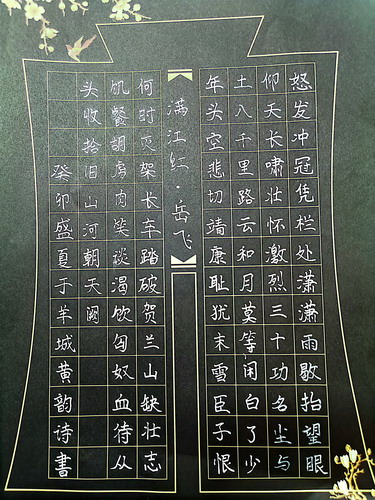 怒发冲冠凭栏处潇潇雨歇抬望眼
仰天长啸壮怀激烈三十功名尘与
土八千里路云和月莫等闲白了少
年头空悲切靖康耻犹未雪臣子恨
满江红·岳飞
何时灭架长车踏破贺兰山缺壮志
饥餐胡虏肉笑谈渴饮匈奴血待从
头收拾旧山河朝天阙
癸卯盛夏于羊城黄韵诗书